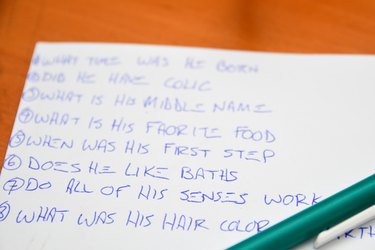 ① WHAT TIME WAS HE BORN
② DID HE HAVE COLIC
③ WHAT IS HIS MIDDLE NAME
④ WHAT IS HIS FAORITE FOOD
⑤ WHEN WAS HIS FIRST STEP
⑥ DOES HE LIKE BATHS
⑦ DO ALL OF HIS SENSES WORK
⑧ WHAT WAS HIS HAIR COLOR